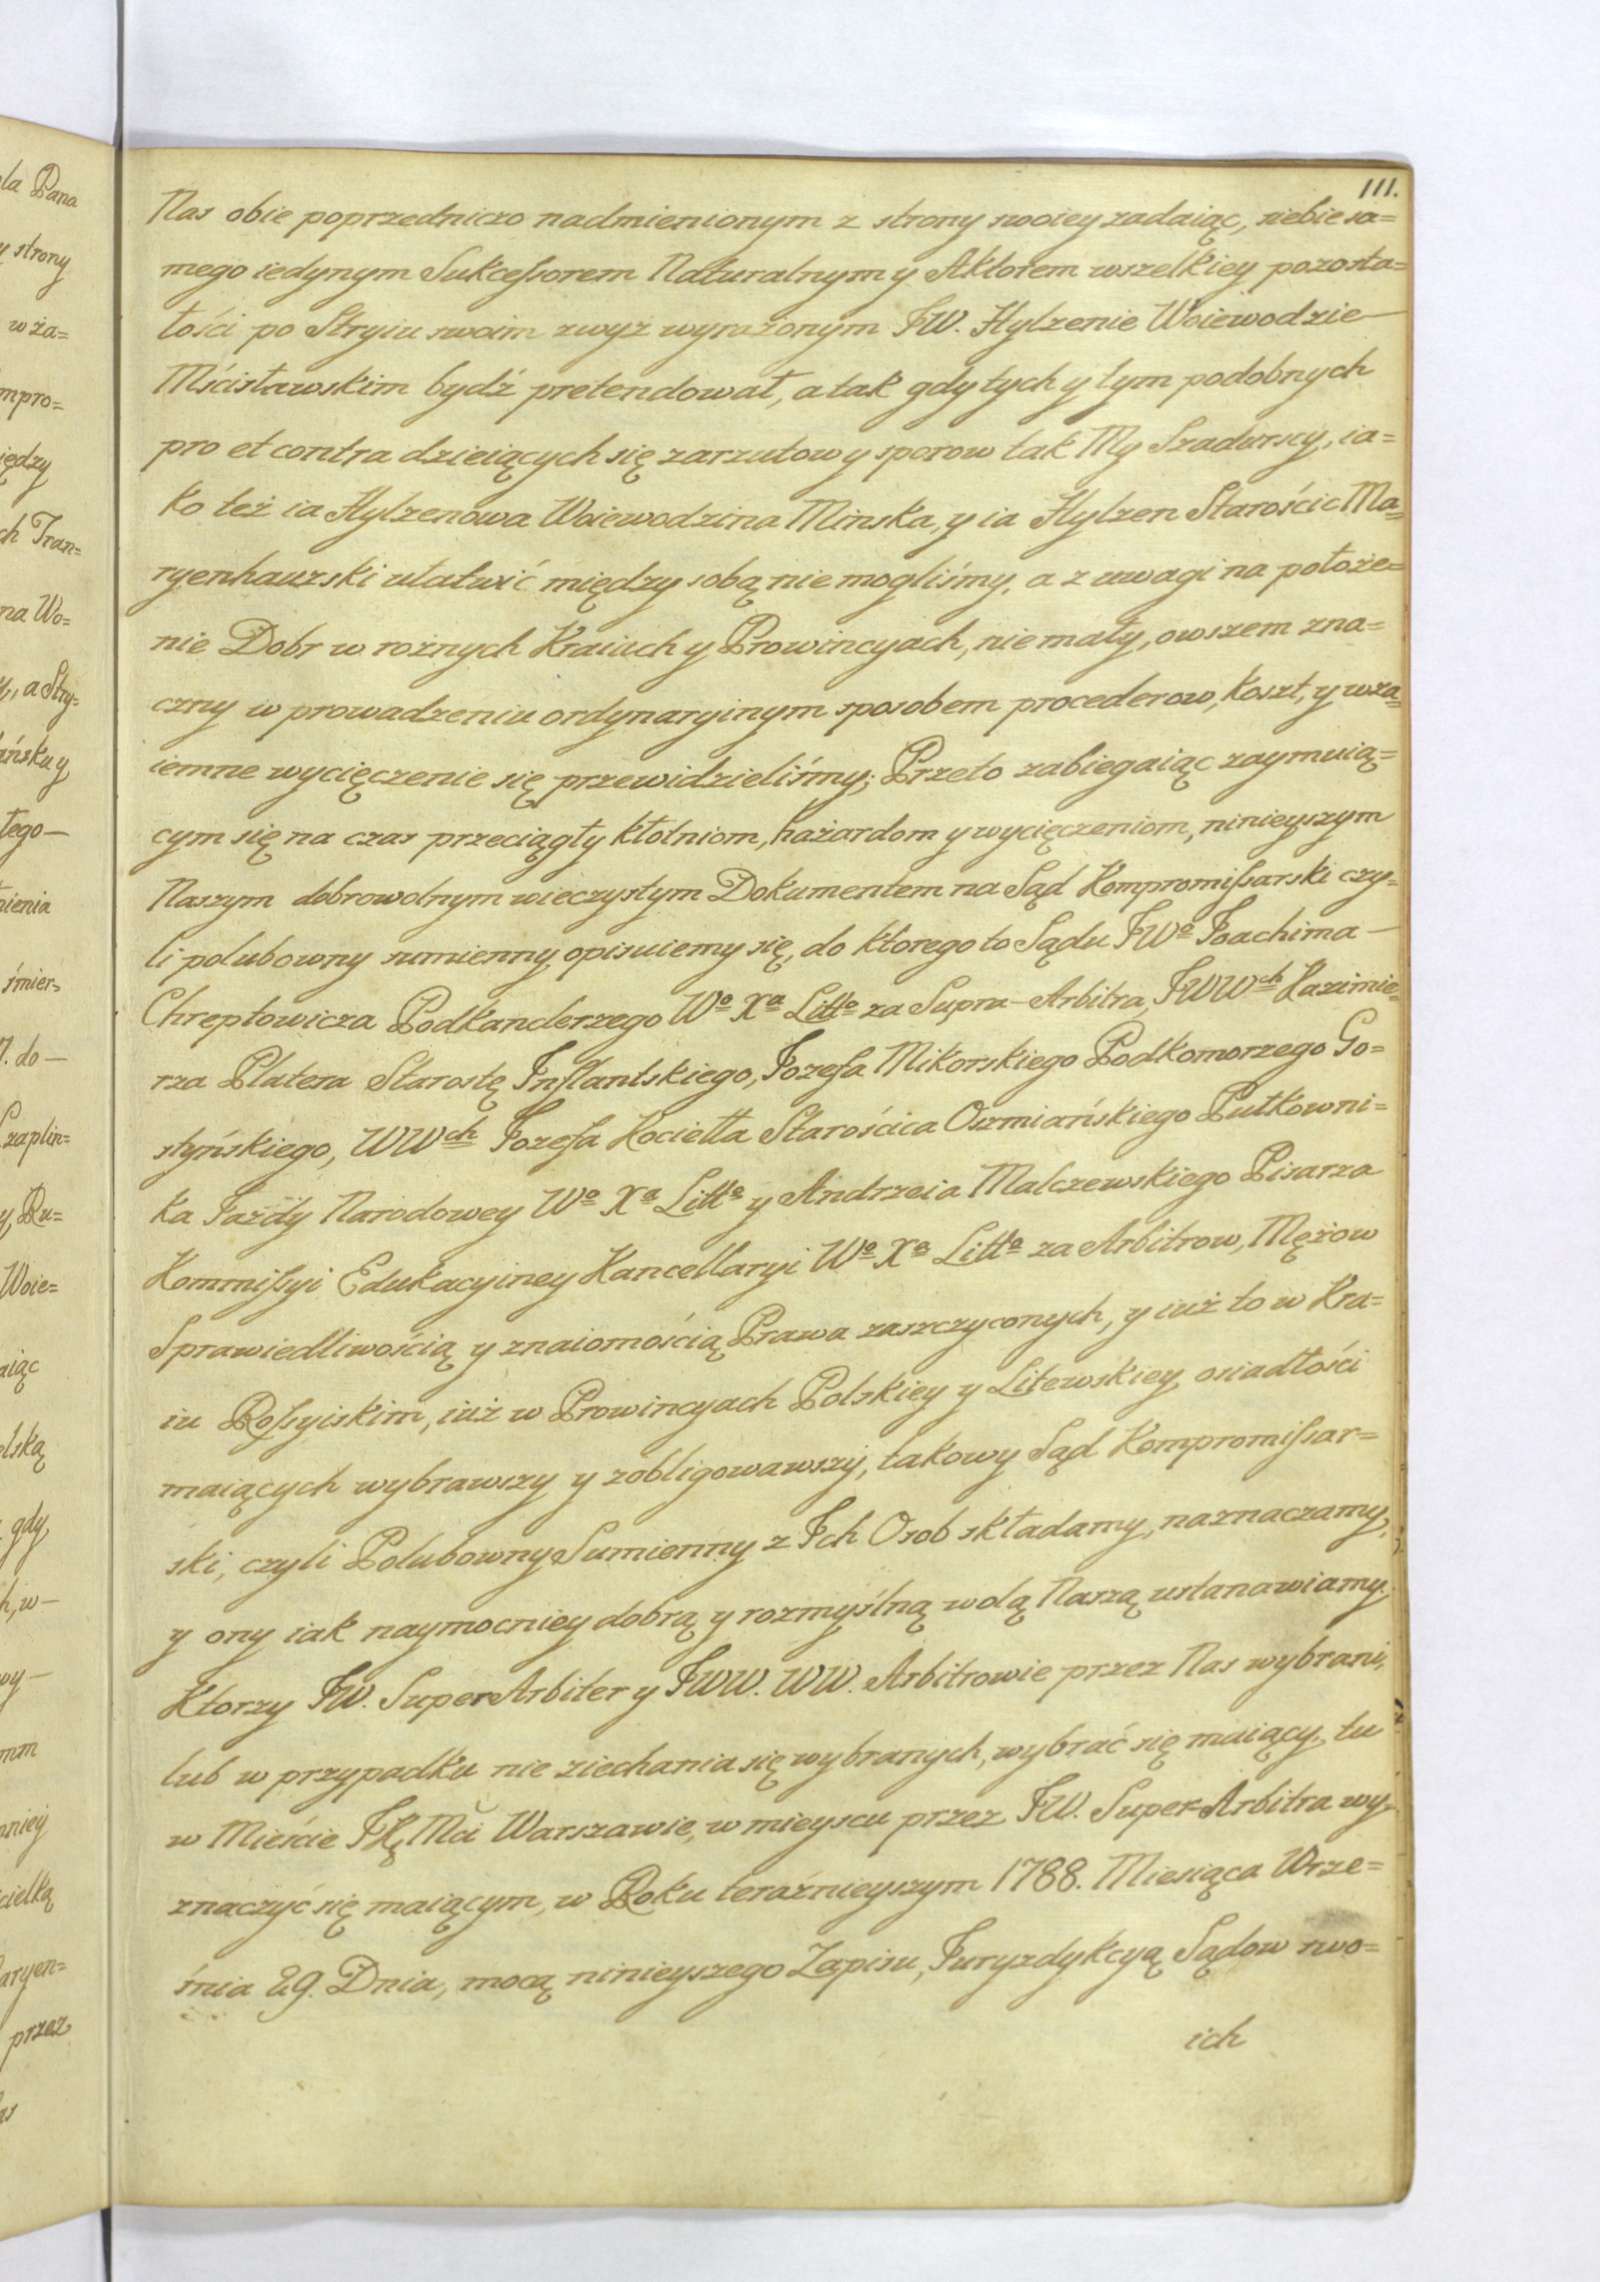 111.
Nas obie poprzedniczo nadmienionym z strony swoiey zadaiąc, siebie sa=
mego iedynym Sukcessorem Naturalnym y Aktorem wszelkiey pozosta=
łości po Stryiu swoim zwyż wyrażonym JW. Hylzenie Woiewodzie—
Mścisławskim bydź pretendował, a tak gdy tych y tym podobnych
pro et contra dzieiących się zarzutow y sporow tak My Szadurscy, ia=
ko też ia Hylzenowa Woiewodzina Minska, y ia Hylzen Starościc Ma=
ryenhauzski ułatwić między sobą nie mogliśmy, a z uwagi na położe=
nie Dobr w rożnych Kraiach y Prowincyach, nie mały, owszem zna=
czny w prowadzeniu ordynaryinym sposobem procederow, koszt, y wza=
iemne wycięczenie się przewidzieliśmy; Przeto zabiegaiąc zaymuią=
cym się na czas przeciągły kłotniom, hażardom y wycięczeniom, ninieyszym
Naszym dobrowolnym wieczystym Dokumentem na Sąd Kompromissarski czy=
li polubowny sumienny opisuiemy się, do ktorego to Sądu JWo Joachima—
Chreptowicza Podkanclerzego Wo Xa Litto za Supra-Arbitra, JWWch Kazimie=
rza Platera Starostę Inflantskiego, Jozefa Mikorskiego Podkomorzego Go=
styńskiego, WWch Jozefa Kociełła Starościca Oszmiańskiego Pułkowni=
ka Jazdy Narodowey Wo Xa Litto y Andrzeia Malczewskiego Pisarza
Kommissyi Edukacyiney Kancellaryi Wo Xa Litto za Arbitrow, Mężow
Sprawiedliwością y znaiomością Prawa zaszczyconych, y iuż to w Kra=
iu Rossyiskim, iuż w Prowincyach Polskiey y Litewskiey osiadłości
maiących wybrawszy y zobligowawszy, takowy Sąd Kompromissar=
ski, czyli Polubowny Sumienny z Ich Osob składamy, naznaczamy,
y ony iak naymocniey dobrą y rozmyślną wolą Naszą ustanawiamy.
Ktorzy JW. SuperArbiter y JWW. WW. Arbitrowie przez Nas wybrani,
lub w przypadku nie ziechania się wybranych, wybrać się maiący, tu
w Mieście JK Mci Warszawie, w mieyscu przez JW. Super-Arbitra wy=
znaczyć się maiącym, w Roku teraźnieyszym 1788. Miesiąca Wrze=
śnia 29. Dnia, mocą ninieyszego Zapisu, Juryzdykcyą Sądow swo=
ich